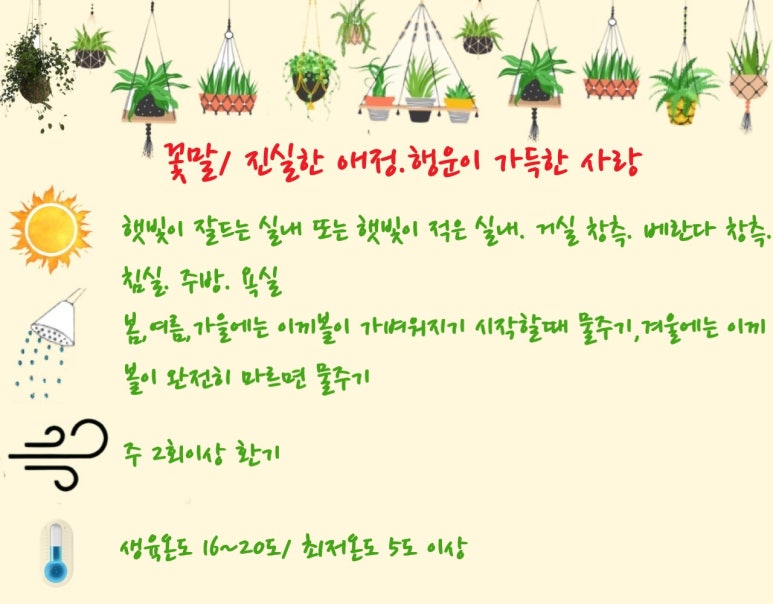 꽃말/ 진실한 애정.행운이 가득한 사랑
햇빛이 잘드는 실내 또는 햇빛이 적은 실내. 거실 창측. 베란다 창측.
침실. 주방. 욕실
봄,여름,가을에는 이끼볼이 가벼워지기 시작할때 물주기,겨울에는 이끼
볼이 완전히 마르면 물주기
주 2회이상 환기
생육온도 16~20도/ 최저온도 5도 이상